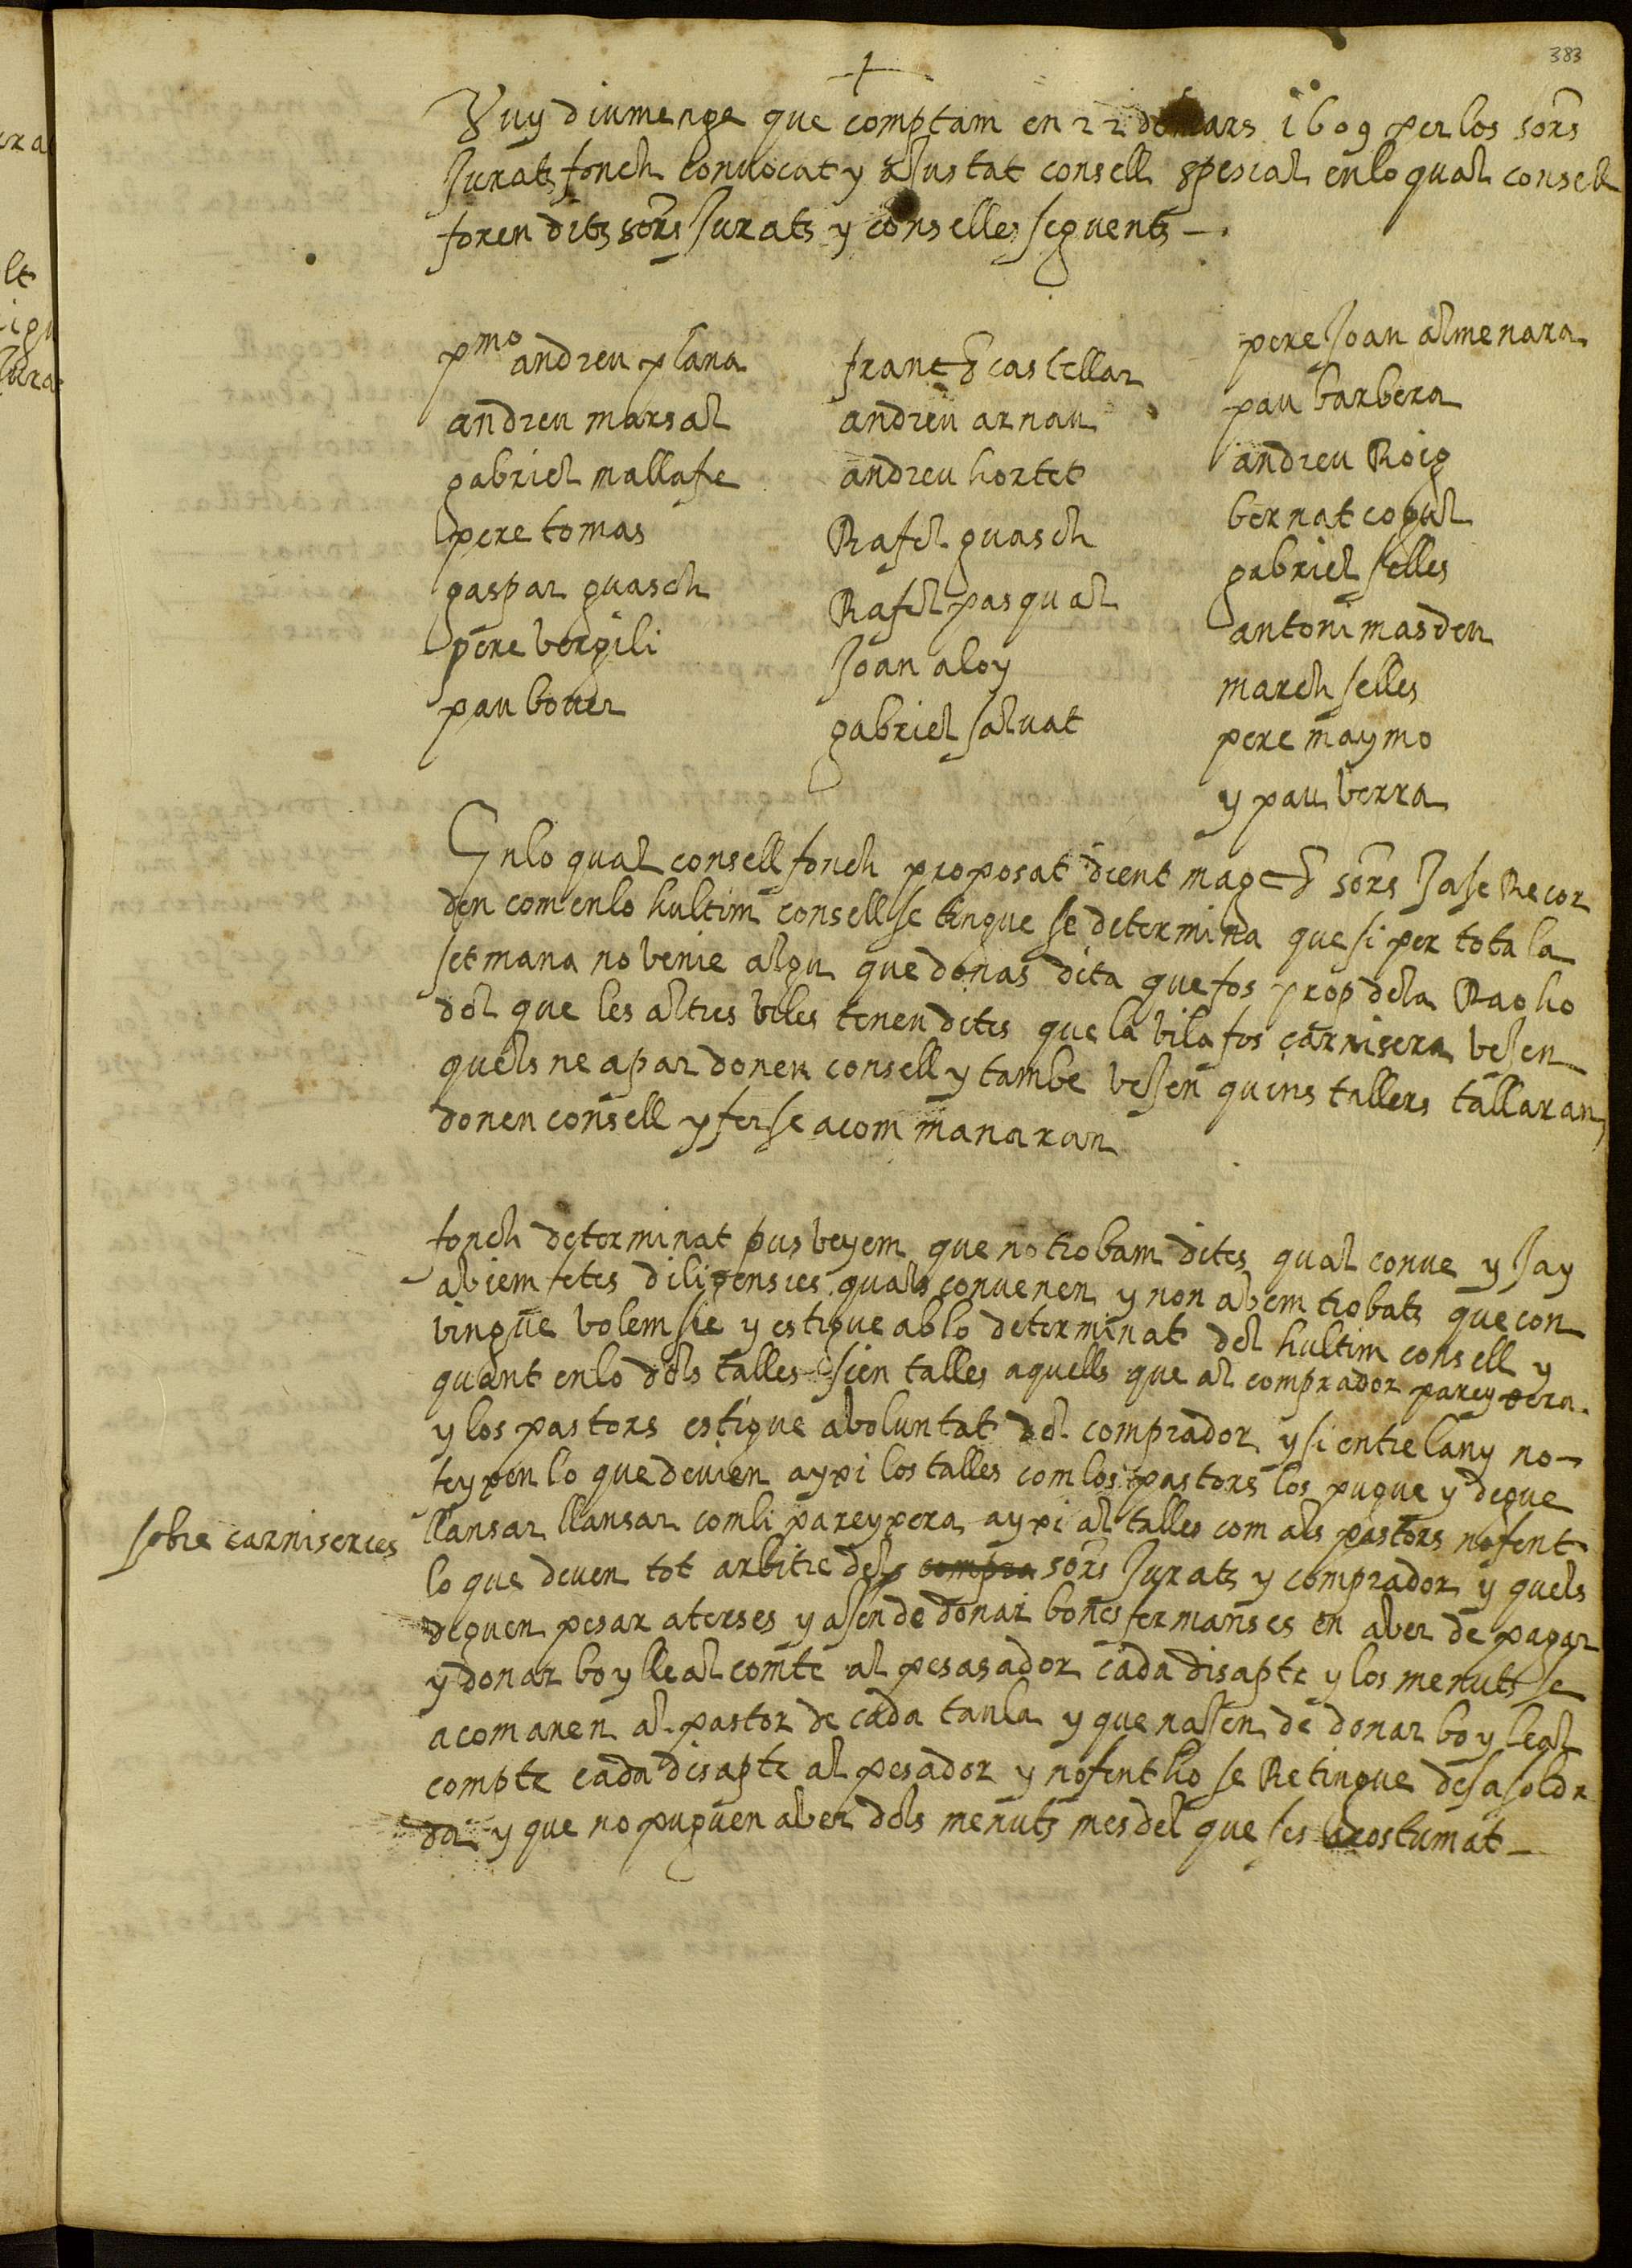 383
Vuy diumenge que comptam en 22 de mars 1609 per los sors
Jurats fonch convocat y aJustat consell spesial enlo qual consell
foren dits sors Jurats y conselles seguents
pmo andreu plana
andreu marsal
gabriel mallafe
pere tomas
gaspar guasch
pere vergili
pau bover
franc castellar
andreu arnau
andreu hortet
Rafel guasch
Rafel pasqual
Joan aloy
gabriel salvat
pere Joan almenara
pau barbera
andreu Roig
bernat cogul
gabriel selles
antoni masdeu
march selles
pere maymo
y pau verra
Enlo qual consell fonch proposat dient mag sors Ja se Recor
den com enlo hultim consell se tingue se determina que si per tota la
setmana no venie algu que donas dita que fos prop dela Rao ho
del que les altres viles tenen dites que la vila fos carnisera veJen
quels ne apar donen consell y tambe veJen quens tallers tallaran
donen consell y ferse a com manaran
fonch determinat pus veyem que no trobam dites qual conve y Jay
abiem fetes diligensies quals convenen y non abem trobats que con
vingue volem sie y estigue ab lo determinat del hultim consell y
quant enlo dels talles sien talles aquells que al comprador pareyxera
y los pastors estigue a voluntat del comprador y si entre lany no
feyxen lo que devien ayxi los talles com los pastors los pugue y degue
sobre carniseries
llansar llansar com li pareyxera ayxi al talles com als pastors nofent
lo que deven tot arbitre dels compra sors Jurats y comprador y quels
deguen pesar a terses y aJen de donar bones fermanses en aber de pagar
y donar bo y lleal comte al pesasador cada disapte y los menuts se
acomanen al pastor de cada taula y que naJen de donar bo y leal
compte cada disapte al pesador y nofentho se Retingue de sa solda
da y que no puguen aber dels menuts mes del que ses acostumat